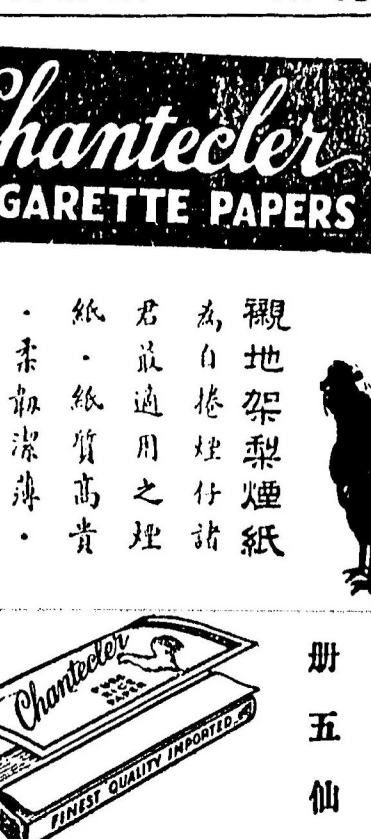 Chantecler
GARETTE PAPERS
襯地架梨煙紙
為自捲烟仔諸
君最適用之烟
紙・紙質高貴
・柔韌潔薄・
Chantecler
PURE
RICE
PAPER
FINEST QUALITY IMPORTED
册五仙